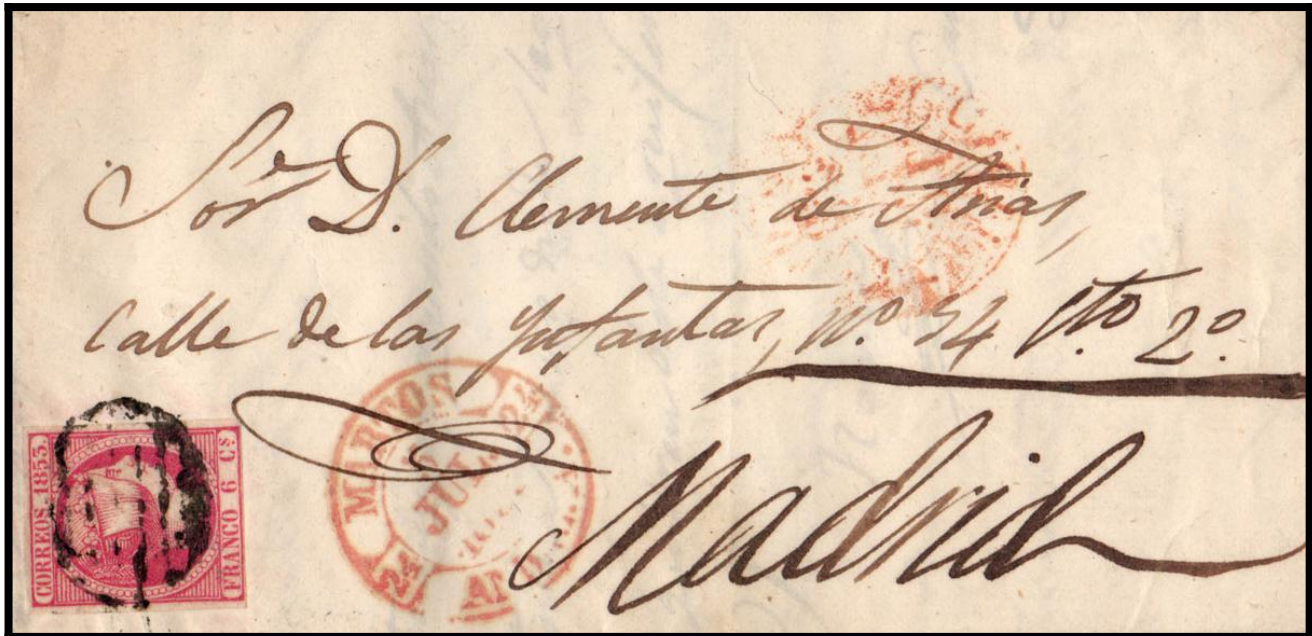 Sor.e D. Clemente de Arias,
Calle de las Ynfantas, nº. 34 Cto. 2º.
Madrid
CORREOS. 1853.
FRANCO 6 Cs
MARTOS
JUL
AND